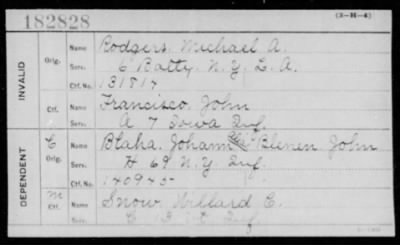 182828
(3-H-4)
INVALID
Orig. Name Rodgers, Michael A.
Serv. 6 Batty. N.Y. L. A.
Ctf. No. 131814
Ctf. Name Francisco, John
Serv. A 7 Iowa Inf.
DEPENDENT
C Orig. Name Blaha, Johann Blenen, John
Serv. H 69 N.Y. Inf.
Ctf. No. 140945
M Ctf. Name Snow, Willard C.
Serv. Inf.